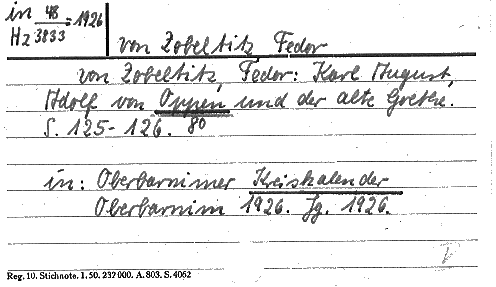 in 48
Hz 3833 = 1926
von Zobeltitz, Fedor
von Zobeltitz, Fedor: Karl August,
Adolf von Oppen und der alte Goethe.
S. 125-126. 8°
in: Oberbarnimer Kreiskalender
Oberbarnim 1926. Jg. 1926.
Reg. 10. Stichnote. 1. 50. 232000. A. 803. S. 4062